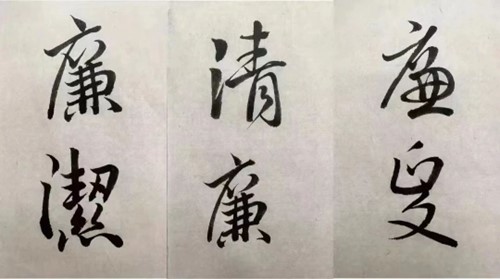 廉潔
清廉
廉